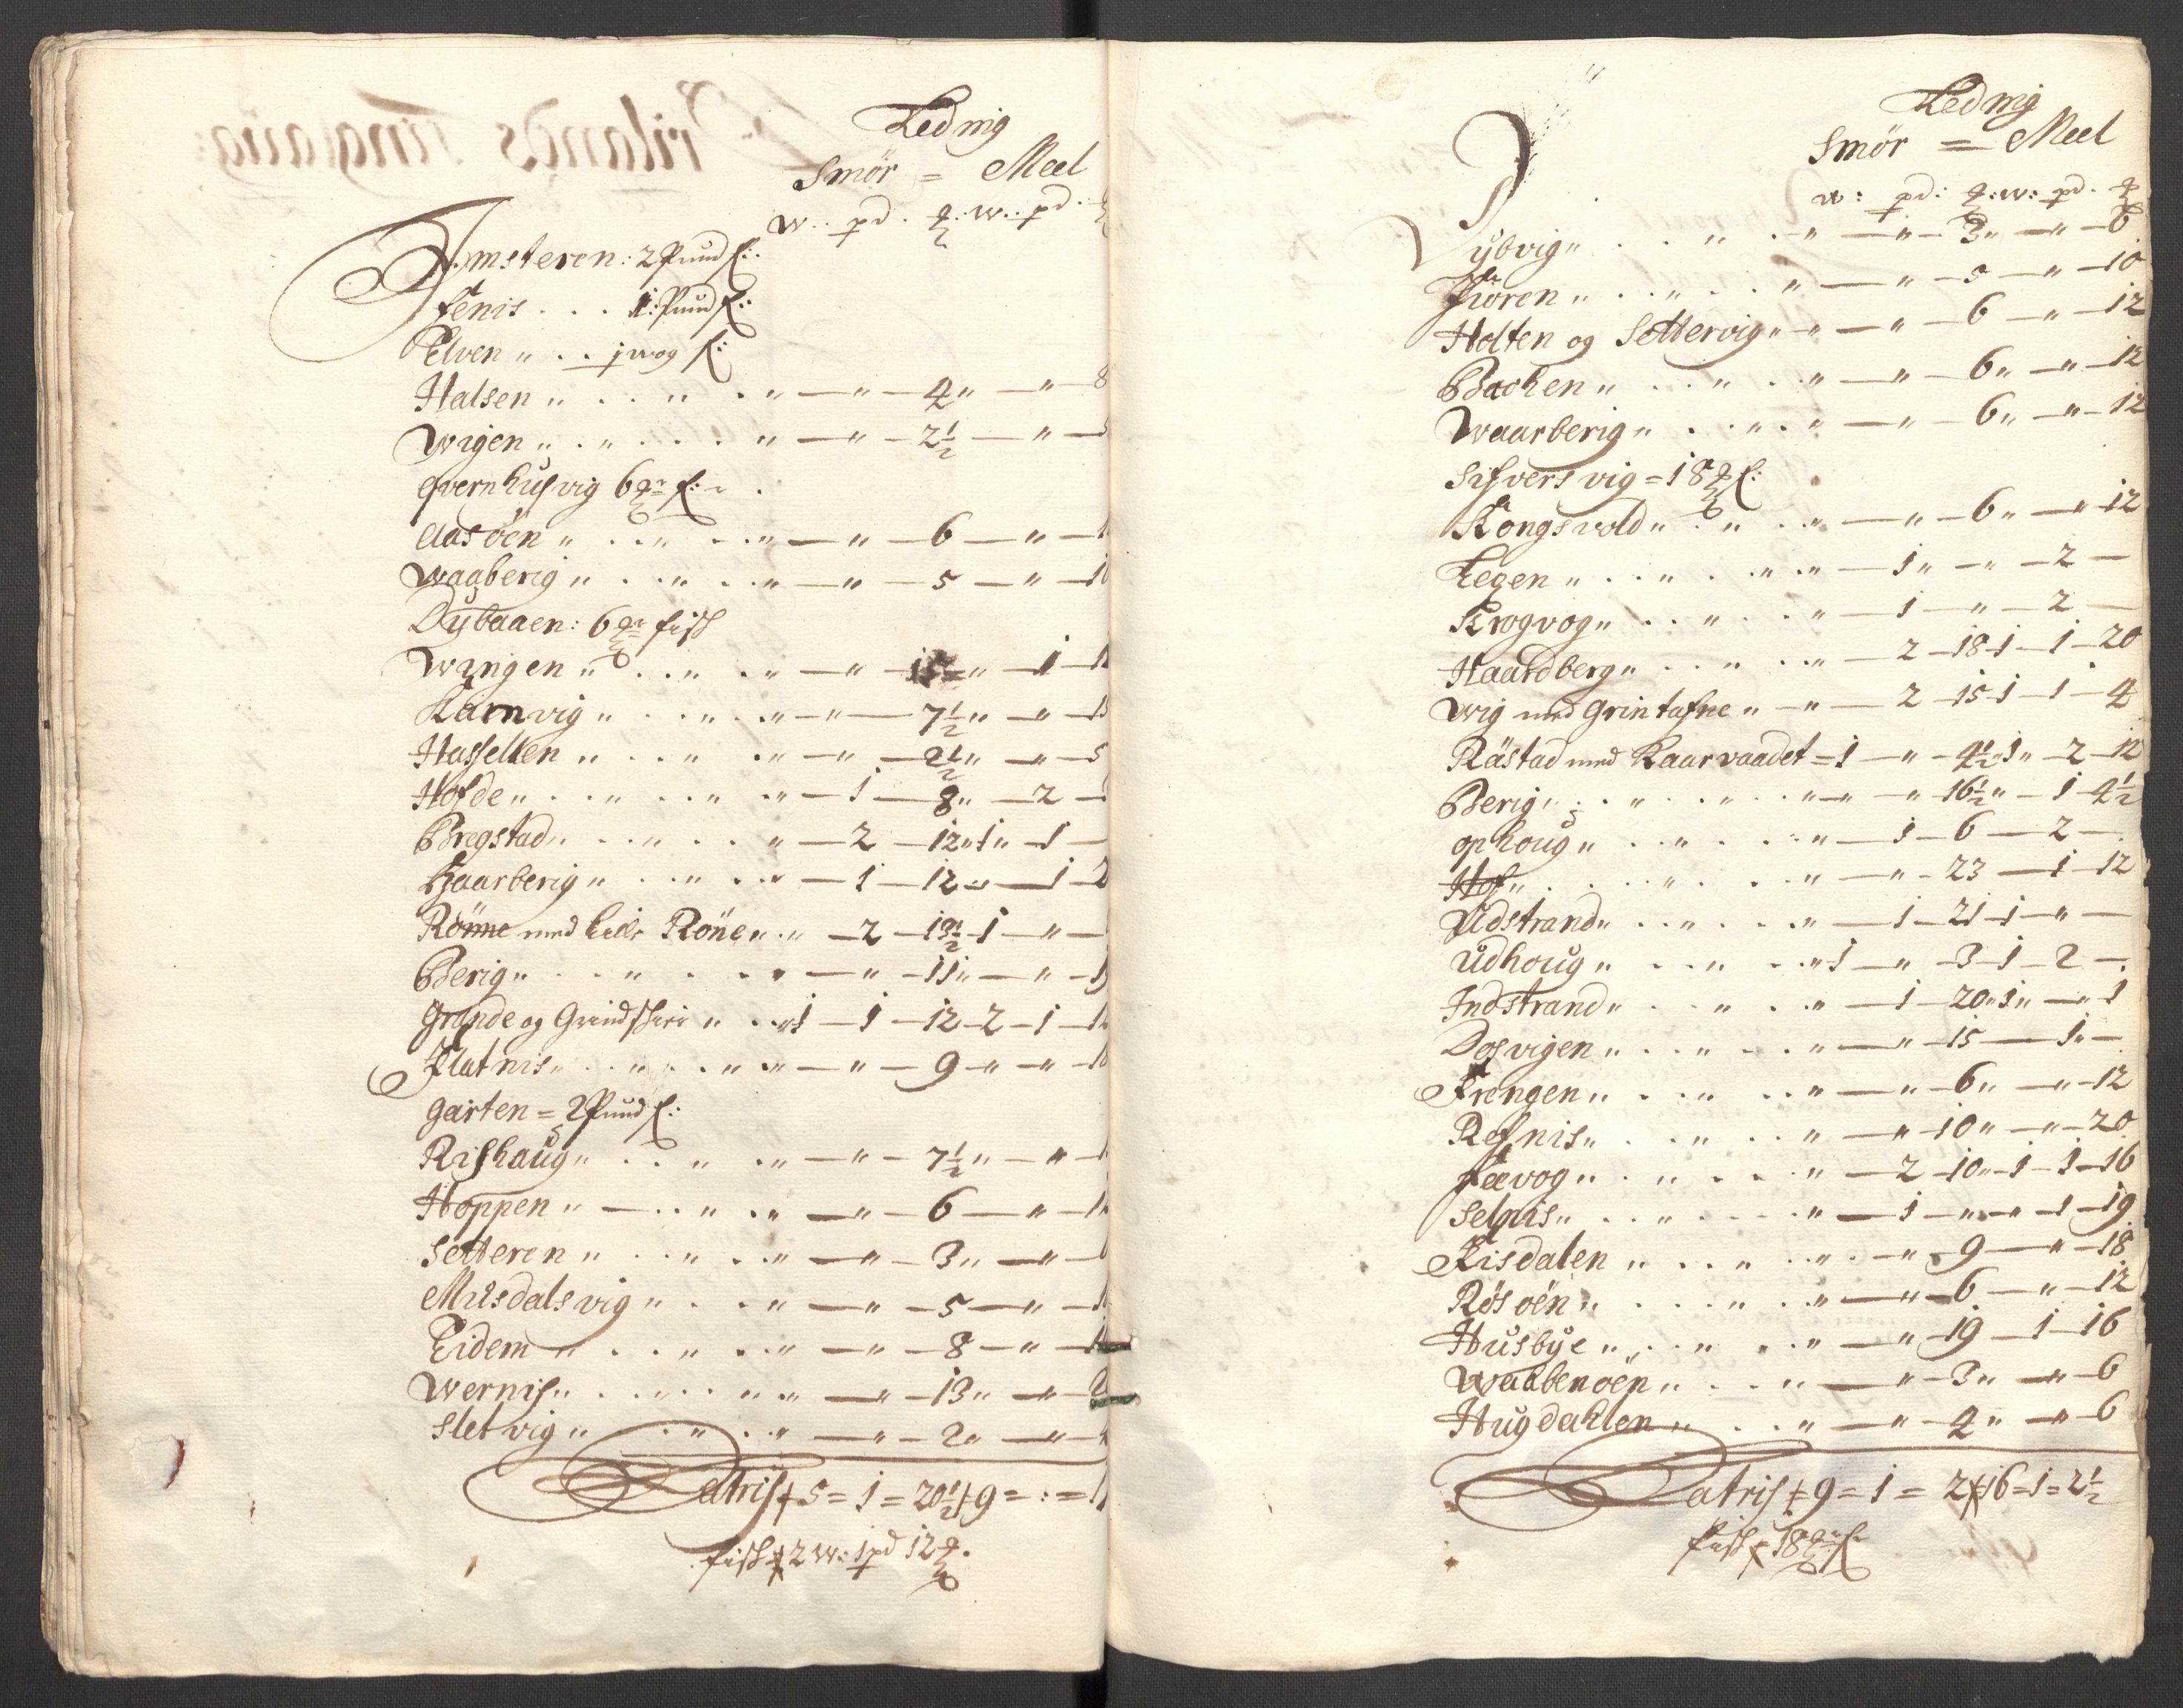 Lednig
Smör = Meel
w.. pd. ℔: w.. pd.
Imsteren: 2 Pund f:
Fenis . . . 1: Pund f:
Elven " . . j wog f:
Halsen " . . " . " — " — 4 " — " — 8
Wigen " . " . . . " — " — 2½ — " —
qvernhusvig 6 ℔r f:
Aasöen " . . " . . " — " — 6 — " —
Waaberig " . . " . . " — " — 5 — " —
Dybaaen: 6 ℔r fisk
Wingen " . . " . " — " — 15 " — 1 —
Karnvig " . . " . " — " — 7½ " — " —
Hasselten " . . " . " — " — 2½ " — " — 5
Hofde " . . " . . " . " — 1 — 8 " — 2 —
Bregstad " . . " . . " — 2 — 12 " 1 " — 1 —
Haarberig " . . " . . " — 1 — 12 " — 1 — 2
Rönne med lille Röne " . " — 2 — 1 — " —
Berig " . . " . . " — " — 11 " — " —
Grande og Grindskier " . . " 1 — 1 — 12 — 2 — 1 —
Flatnis " . . " . . " " — " — 9 — " — " —
Garten = 2 Pund f:
Rishaug " . . " . " — " — 7½ " — " —
Hoppen " — . . " . " — " — 6 — " —
Setteren " . . " . . " — " — 3 " — " —
Musdalsvig " . . " — " — 5 — " —
Eidem " . . " . . " — " — 8 — " —
Wernis " . . " . . " " — " — 13 " — " — 2
Sletvig " . " . . " — " — 2 " — " —
Latris ‡ 5 = 1 = 20½ ‡ 9 = : =
fisk ‡ 2 w: 1 pd 12 ℔.
Lednig
Smör = Meel
w: pd: ℔: w: pd. ℔
Dybvig " . . " . " — " — 3 " — " — 6
Fiören " . . " . . " — " — 5 — " — 10
Holten og Settervig " " — " — 6 — " — 12
Bachen " . . " . . " — " — 6 " — " — 12
Waarberig " . . " . " — " — 6 " — " — 12
Sifversvig = 18 ℔ f:
Kongsvold " . " . . " — " — 6 " — " — 12
Legen " . . " . " " — 1 " — " — 2 —
Krogvog " . . " . . " — 1 — " — 2 —
Haardberg " . . " . . " — 2 — 18 — 1 — 1 — 20
Wig med Grintafne " — " — 2 — 15 — 1 — 1 — 4
Rästad med Kaarvaadet = 1 — " — 4½ " 1 " — 2 — 12
Berig " . . " . . " " — " — 16½ " — 1 — 4½
ophoug " . . " . . " — 1 — 6 — 2 —
Hof " . . . " . . " — " — 23 — 1 — 12
Udstrand " . . " . . " — 1 — 21 — 1 — " —
Udhoug " . . " . . " 1 — " — 3 — 1 — 2 —
Indstrand " . . " . . " — 1 — 20 " 1 " — " 1
Dosvigen " . . " . . " — " — 15 — 1 " —
Frengen " . . " . . " — " — 6 " — " — 12
Refnis " . . " . . " — " 10 " — " — 20
Fævog " . . " . . " — 2 — 10 " — 1 — 1 — 16
Selnis " . . " . . " — 1 — " — " — 1 — 19
Risdalen " . . " . . " . — " 9 — " — 18
Rösöen " . . " . . " — " — 6 — " — 12
Husbye " . . " . . " — " 19 — 1 — 16
Waabenöen " . . " — " — 3 " — " — 6
Hugdahlen " . . " — " — 4 " — " — 6
Latris ‡ 9 = 1 = 2 ‡ 16 = 1 = 2½
fisk ‡ 18 ℔r f: